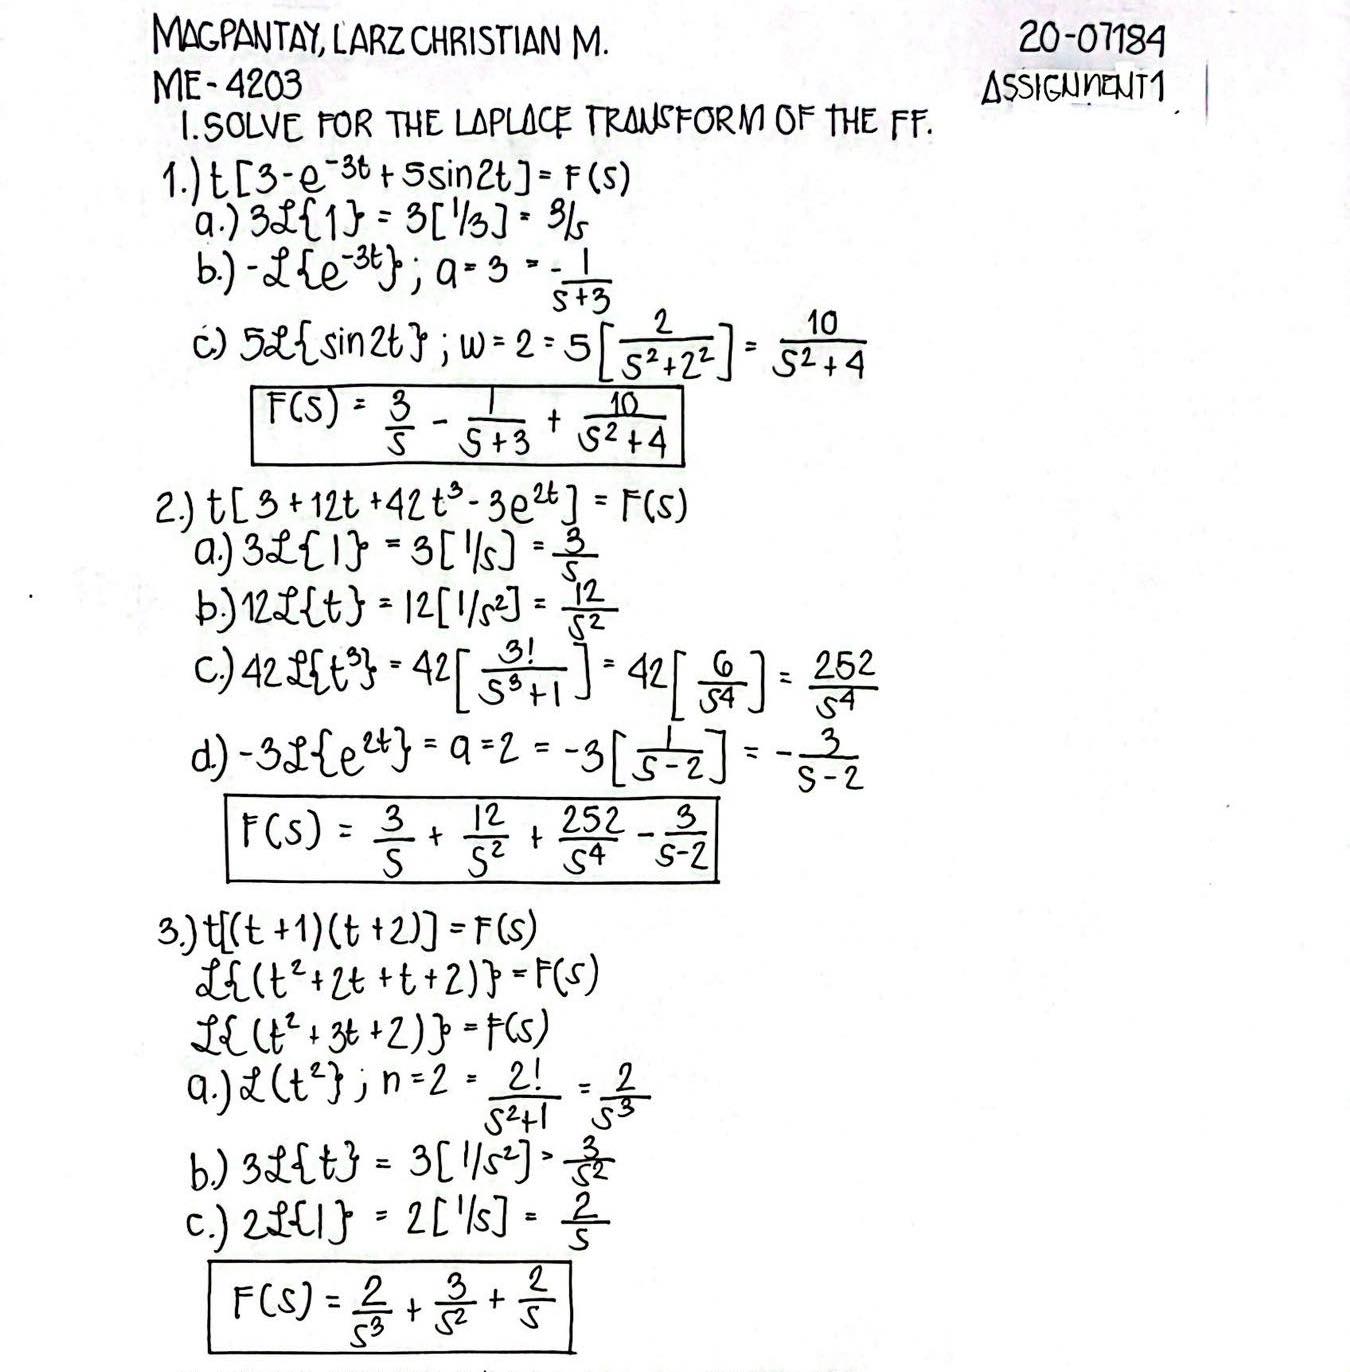 MAGPANTAY, LARZ CHRISTIAN M. 20-07184
ME-4203 ASSIGNMENT 1
1. SOLVE FOR THE LAPLACE TRANSFORM OF THE FF.
1.) t[3-e^-3t + 5sin2t] = F(s)
a.) 3ℒ{1} = 3[1/3] = 3/s
b.) -ℒ{e^-3t}; a=3 = -1/(s+3)
c.) 5ℒ{sin2t}; w=2 = 5[2/(s²+2²)] = 10/(s²+4)
F(s) = 3/s - 1/(s+3) + 10/(s²+4)
2.) t[3+12t+42t³-3e^2t] = F(s)
a.) 3ℒ{1} = 3[1/s] = 3/s
b.) 12ℒ{t} = 12[1/s²] = 12/s²
c.) 42ℒ{t³} = 42[3!/s³+1] = 42[6/s⁴] = 252/s⁴
d.) -3ℒ{e^2t} = a=2 = -3[1/(s-2)] = -3/(s-2)
F(s) = 3/s + 12/s² + 252/s⁴ - 3/(s-2)
3.) t[(t+1)(t+2)] = F(s)
ℒ{(t²+2t+t+2)} = F(s)
ℒ{(t²+3t+2)} = F(s)
a.) ℒ(t²}; n=2 = 2!/s²+1 = 2/s³
b.) 3ℒ{t} = 3[1/s²] = 3/s²
c.) 2ℒ{1} = 2[1/s] = 2/s
F(s) = 2/s³ + 3/s² + 2/s